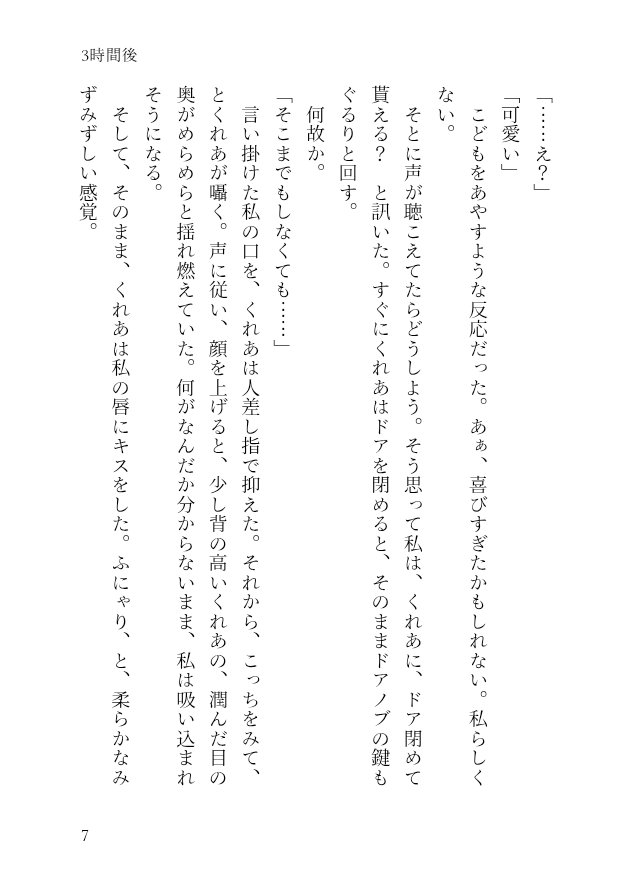 3時間後
「……え？」
「可愛い」
　こどもをあやすような反応だった。あぁ、喜びすぎたかもしれない。私らしく
ない。
　そとに声が聴こえてたらどうしよう。そう思って私は、くれあに、ドア閉めて
貰える？　と訊いた。すぐにくれあはドアを閉めると、そのままドアノブの鍵も
ぐるりと回す。
　何故か。
「そこまでもしなくても……」
　言い掛けた私の口を、くれあは人差し指で抑えた。それから、こっちをみて、
とくれあが囁く。声に従い、顔を上げると、少し背の高いくれあの、潤んだ目の
奥がめらめらと揺れ燃えていた。何がなんだか分からないまま、私は吸い込まれ
そうになる。
　そして、そのまま、くれあは私の唇にキスをした。ふにゃり、と、柔らかなみ
ずみずしい感覚。
7